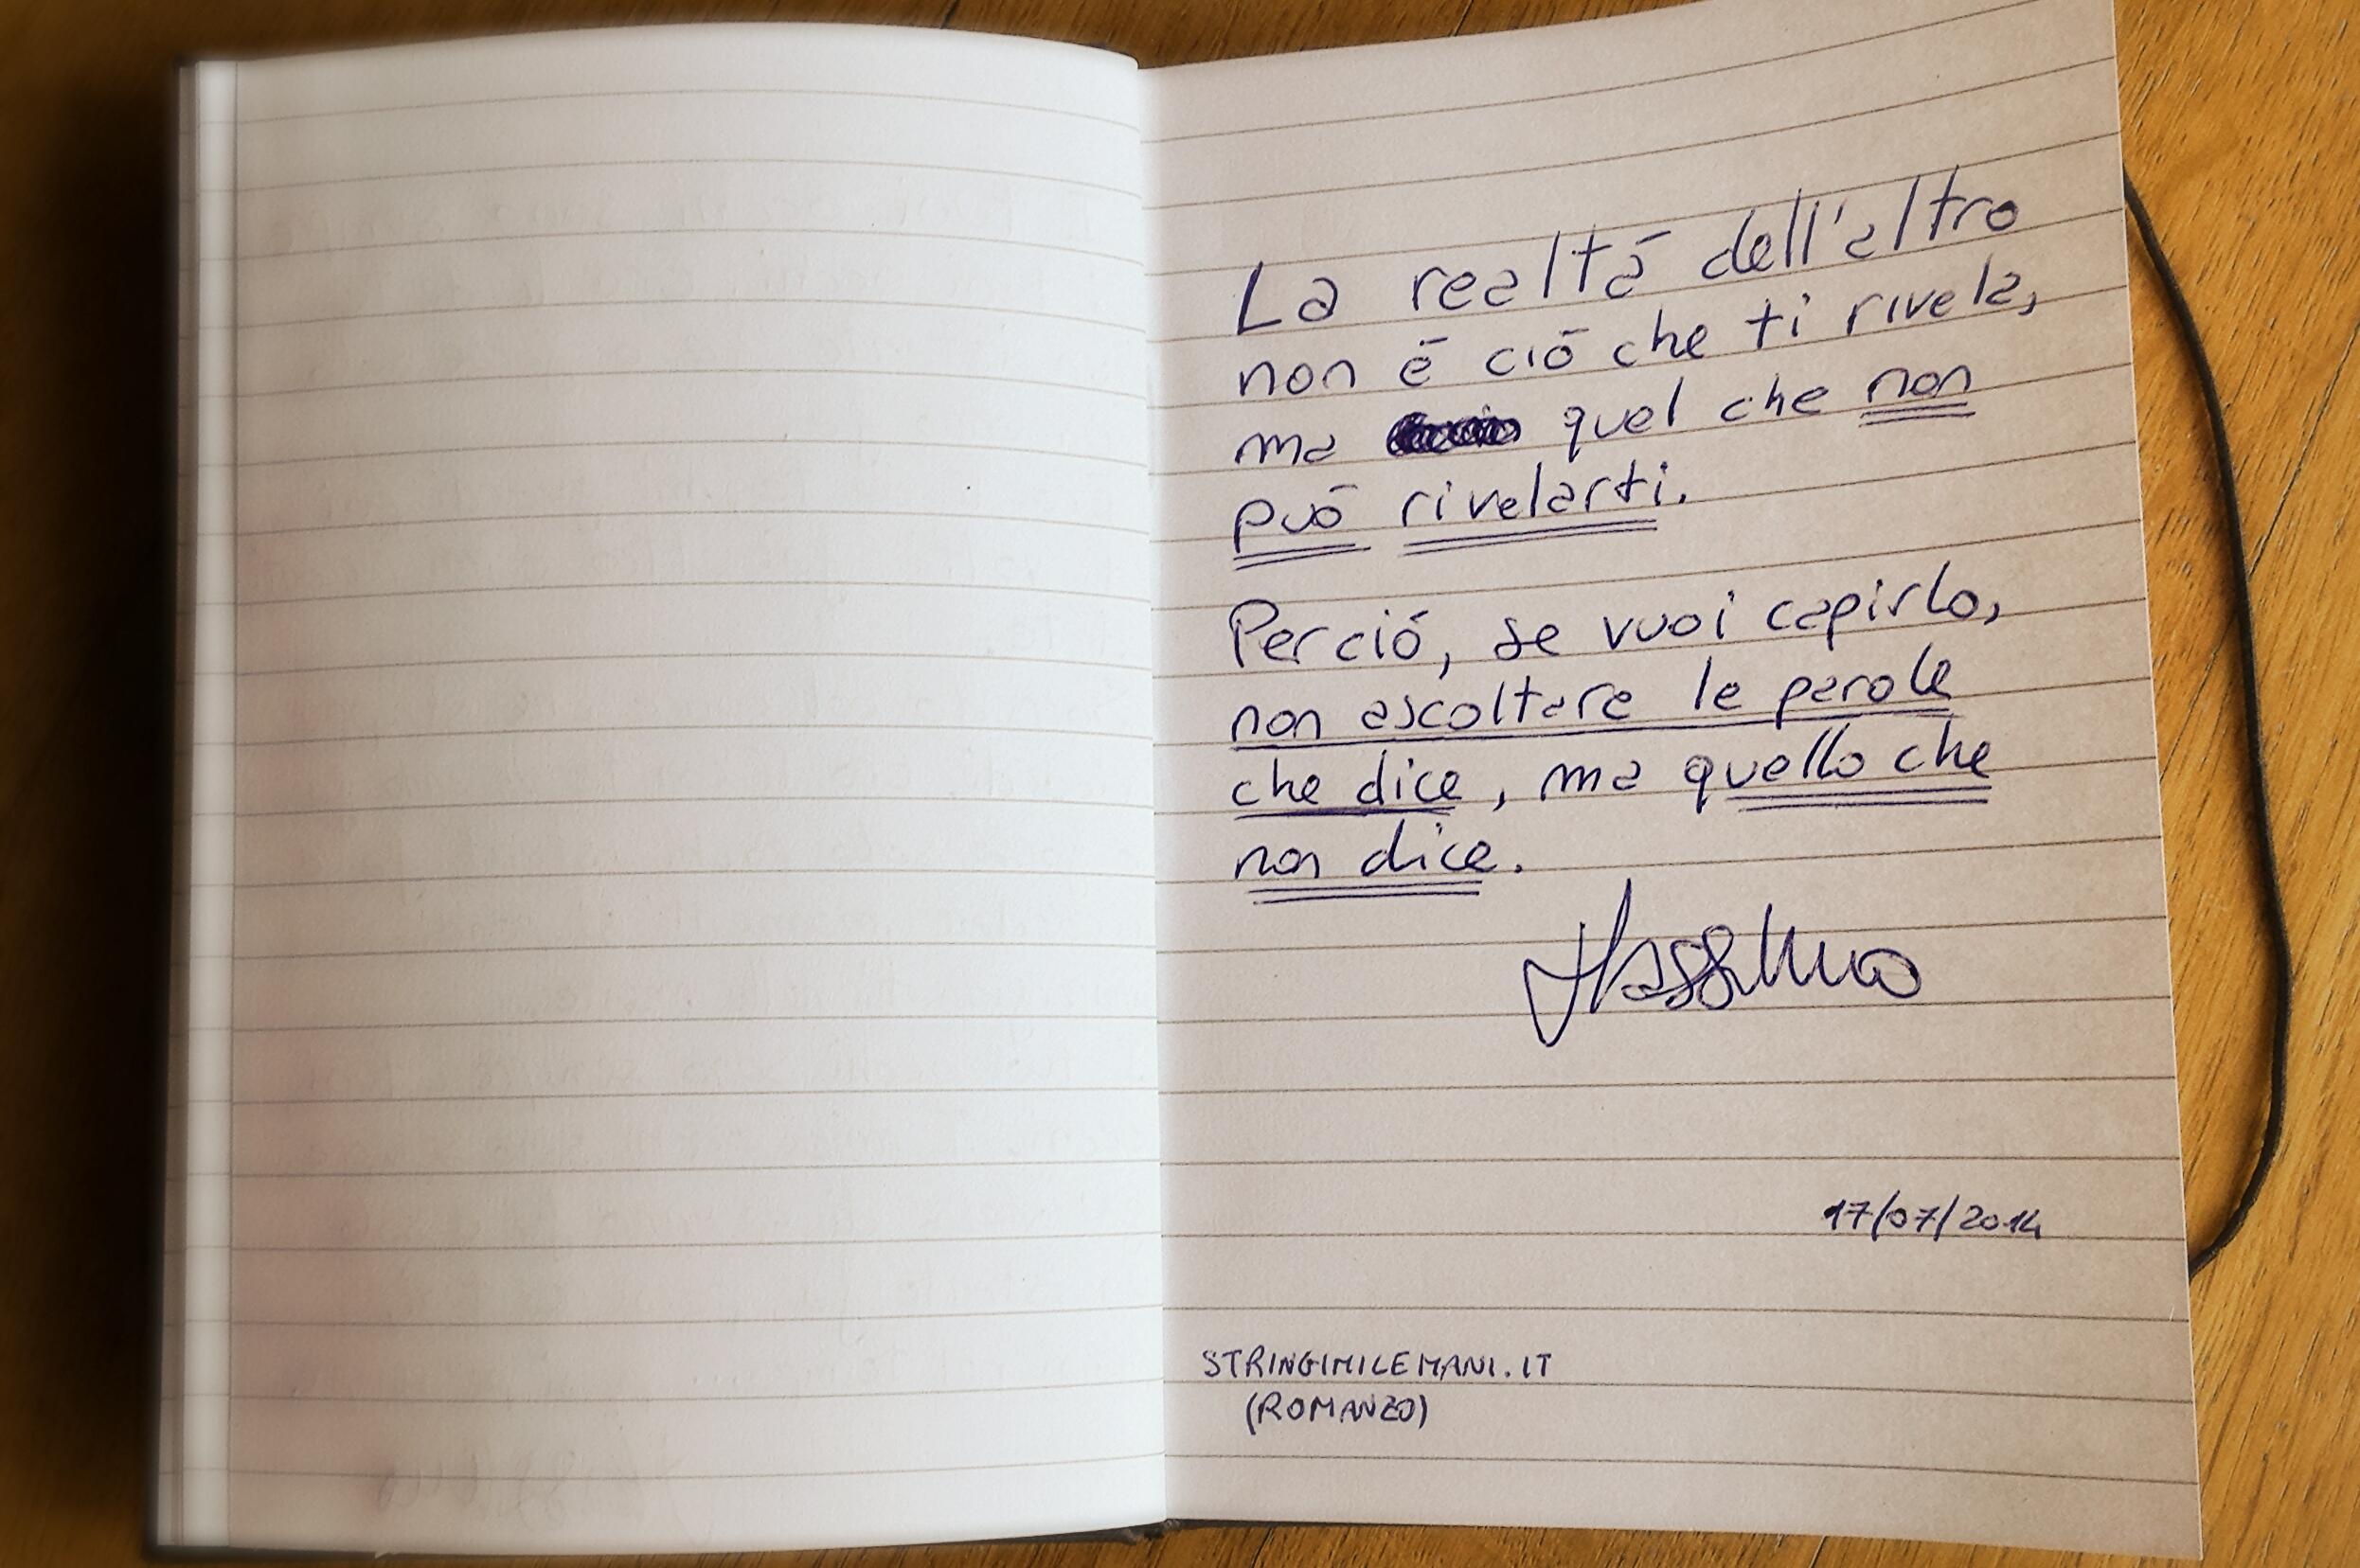 La realtà dell'altro
non è ciò che ti rivela,
ma quel che non
può rivelarti.
Perciò, se vuoi capirlo,
non ascoltare le parole
che dice, ma quello che
non dice.
Massimo
17/07/2014
STRINGIMILEMANI.IT
(ROMANZO)